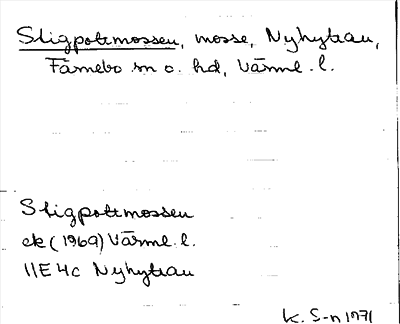 Stigportmossen, mosse, Nyhyttan,
Färnebo sn o. hd, Värml. l.
Stigportmossen
ek (1969) Värml. l.
11E 4c Nyhyttan
K. S-n 1971